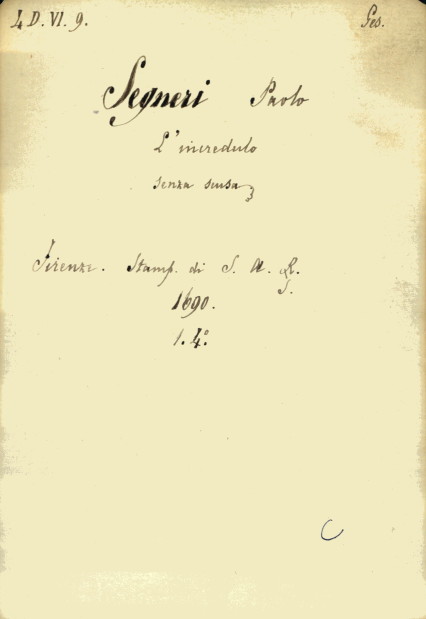 4 D. VI. 9.
Ges.
Segneri Paolo
L'incredulo
senza scusa
Firenze. Stamp. di S. A. R.
S.
1690.
1. 4°.
C